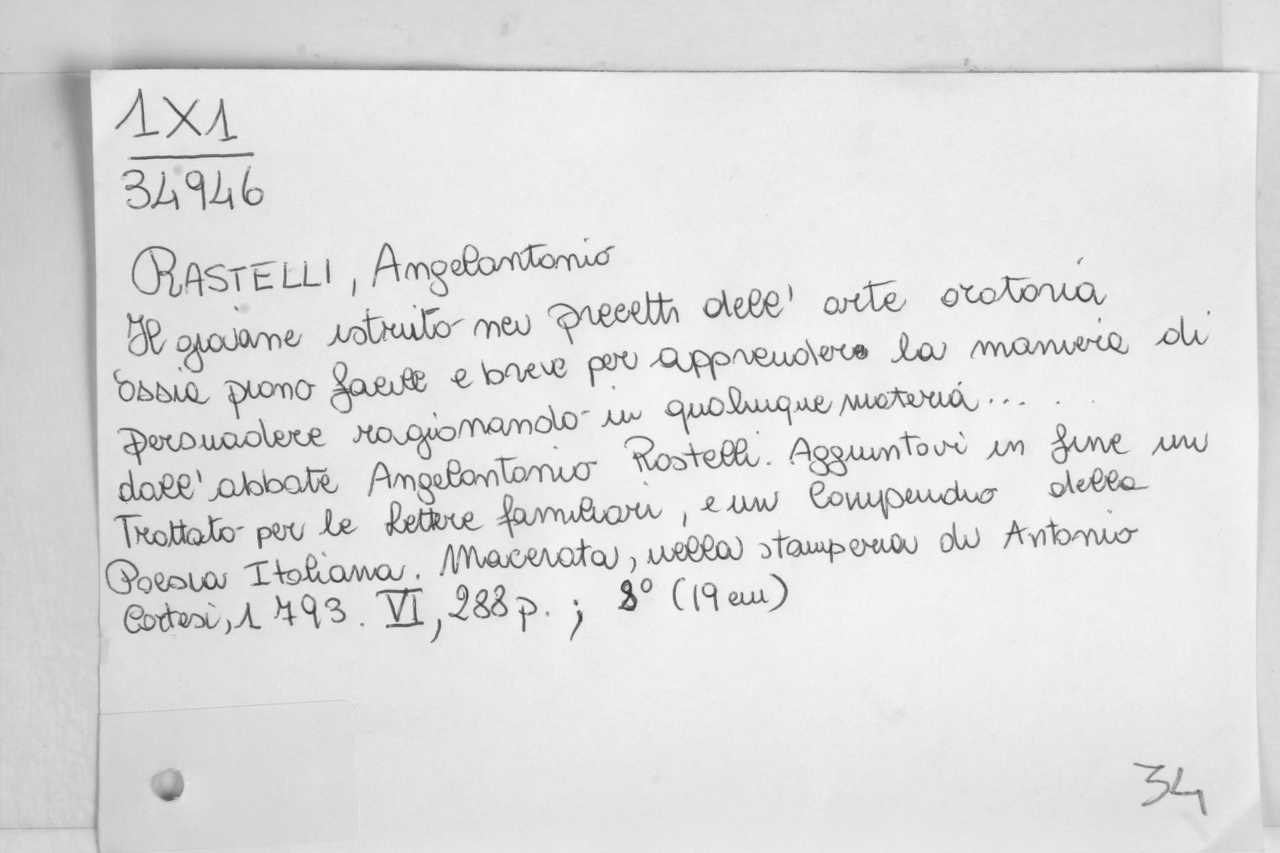 1X1
34946
RASTELLI, Angelantonio
Il giovane istruito nei precetti dell' arte oratoria
ossia piano facile e breve per apprendere la maniera di
persuadere ragionando in qualunque materia...
dall'abbate Angelantonio Rastelli. Aggiuntovi in fine un
Trattato per le lettere famigliari, e un Compendio della
Poesia Italiana. Macerata, nella stamperia di Antonio
Cortesi, 1793. VI, 288 p. ; 8° (19 cm)
34